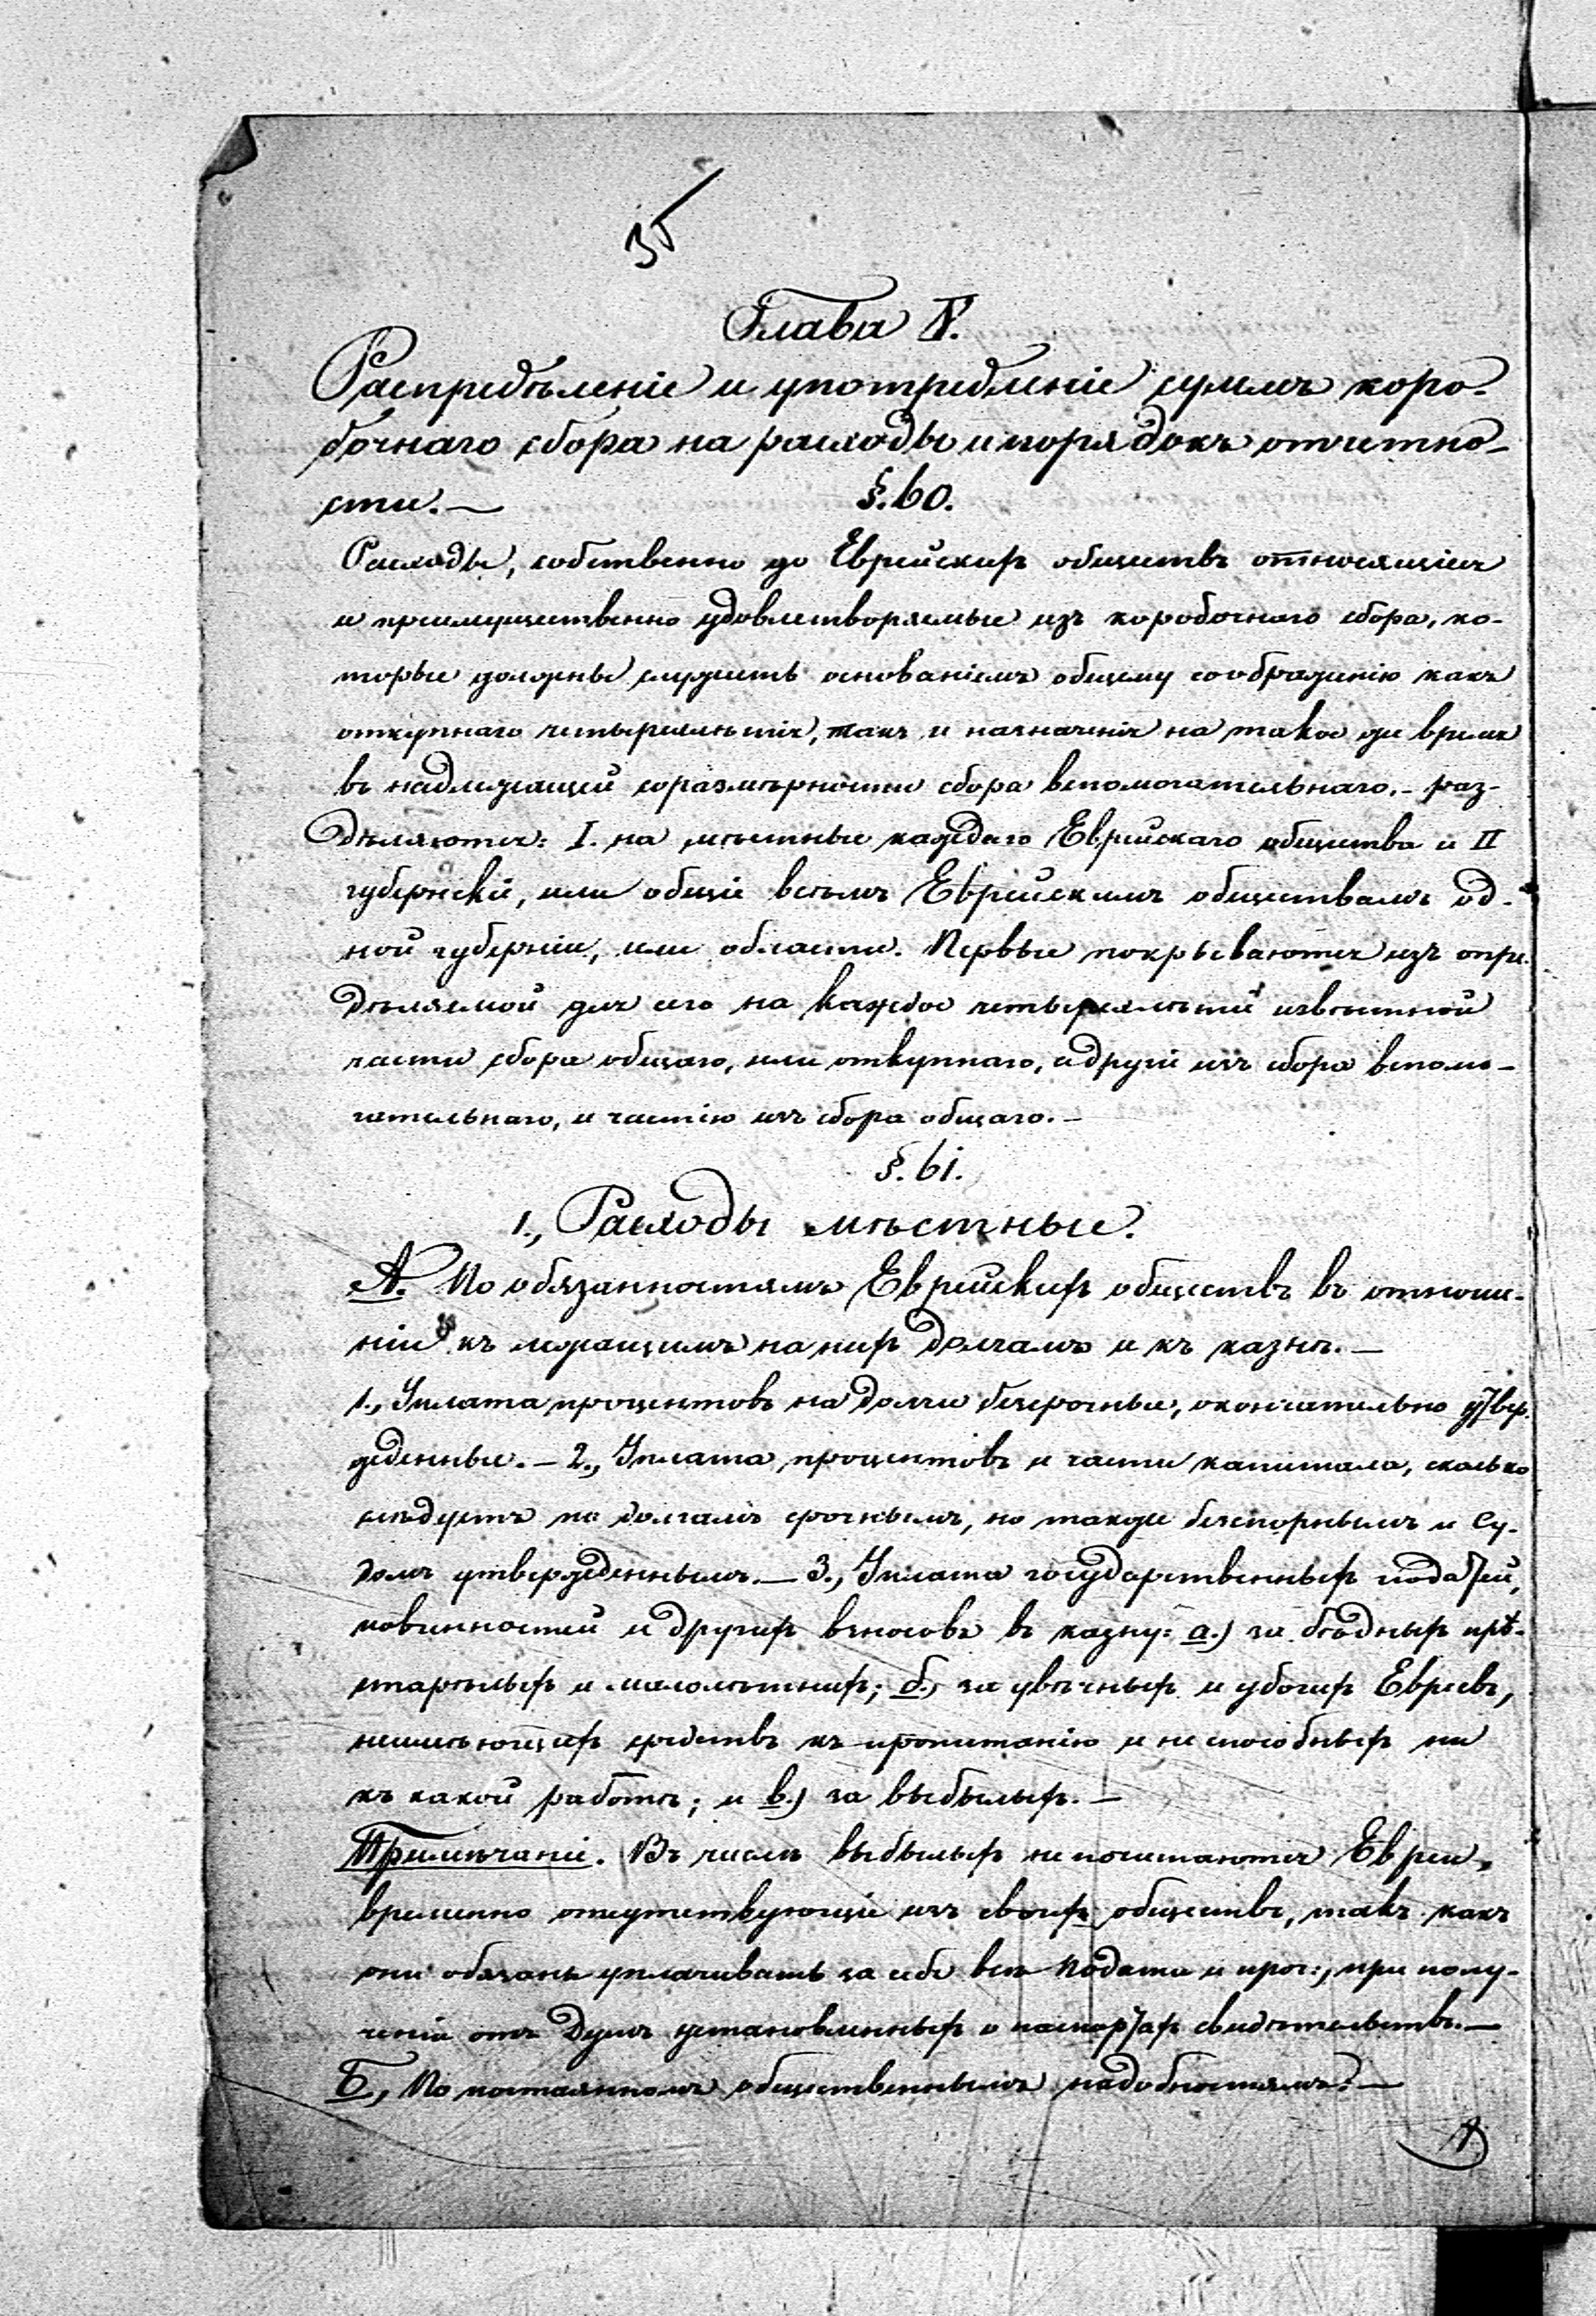 35
Глава V.
Распредѣленіе и употребленіе суммъ коро-
бочнаго сбора на расходы и порядокъ отчетно-
сти.— §. 60.
Расходы, собственно до Еврейскихъ обществъ относящіеся
и преимущественно удовлетворяемые изъ коробочнаго сбора, ко-
торые должны служить основаніемъ общему соображенію какъ
откупнаго четырехлѣтія, такъ и назначенія на такое же время
въ надлежащей соразмѣрности сбора вспомогательнаго. - раз-
дѣляются: I. на мѣстные каждаго Еврейскаго общества и II
губернскіе, или общіе всѣмъ Еврейскимъ обществамъ од-
ной губерніи, или области. Первые покрываются изъ опре-
дѣляемой для сего на каждое четырехлѣтіе извѣстной
части сбора общаго, или откупнаго, а другіе изъ сбора вспомо-
гательнаго, и частію изъ сбора общаго.—
§. 61.
1., Расходы мѣстные.
А. По обязанностямъ Еврейскихъ обществъ въ отноше-
ніи къ лежащимъ на нихъ долгамъ и къ казнѣ.—
1., Уплата процентовъ на долги безсрочные, окончательно утвер-
жденные.— 2., Уплата процентовъ и части капитала, сколько
слѣдуетъ по долгамъ срочнымъ, но также безспорнымъ и Су-
домъ утвержденнымъ.— 3., Уплата государственныхъ податей,
повинностей и другихъ взносовъ въ казну: а.) за бѣдныхъ пре-
старѣлыхъ и малолѣтнихъ; б., за увѣчныхъ и убогихъ Евреевъ,
неимѣющихъ средствъ къ пропитанію и неспособныхъ ни
къ какой работѣ; и в.) за выбылыхъ.—
Примѣчаніе. Въ числѣ выбылыхъ не почитаются Евреи,
временно отсутствующіе изъ своихъ обществъ, такъ какъ
они обязаны уплачивать за себя всѣ подати и проч:, при полу-
ченіи отъ Думъ установленныхъ о паспортахъ свидѣтельствъ.—
Б., По постояннымъ общественнымъ надобностямъ.—